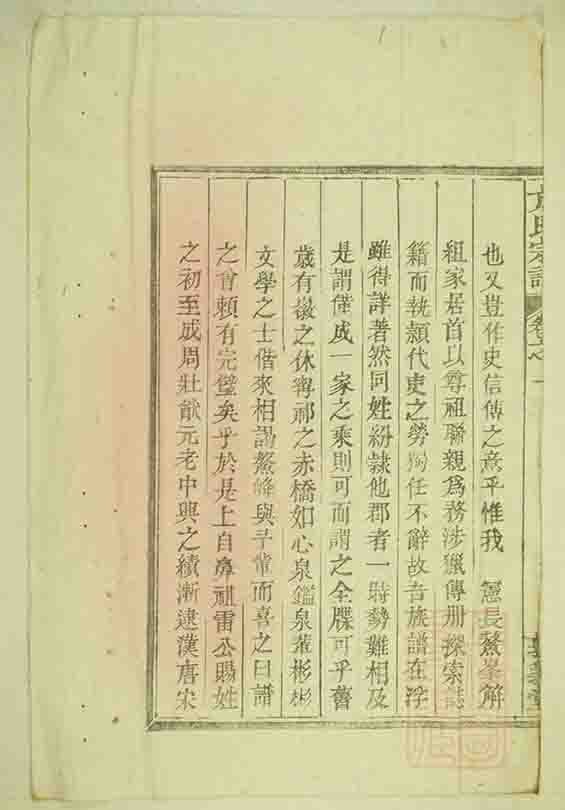 方氏宗譜 卷之 一
也又豈作史信傳之意乎惟我 憲長鰲峯解
組家居首以尊祖聯親為務涉獵傳冊探索誌
籍而執顙代吏之勞獨任不辭故吉族譜在浮
雖得詳著然同姓紛隷他郡者一時勢難相及
是謂僅成一家之乘則可而謂之全牒可乎舊
歲有徽之休寧祁之赤橋如心泉鑑泉輩彬彬
文學之士偕來相謁鰲峰與予輩而喜之曰譜
之會頼有完璧矣乎於是上自鼻祖雷公賜姓
之初至成周壯猷元老中興之績漸逮漢唐宋